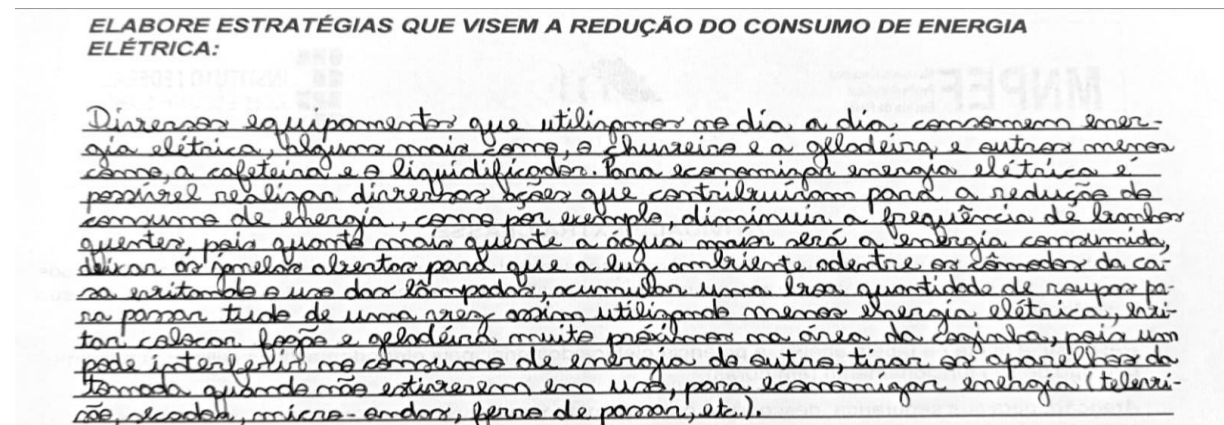 ELABORE ESTRATÉGIAS QUE VISEM A REDUÇÃO DO CONSUMO DE ENERGIA
ELÉTRICA:
Diversos equipamentos que utilizamos no dia a dia consomem ener-
gia elétrica, alguns mais como, o chuveiro e a geladeira e outros menos
como, a cafeteira e o liquidificador. Para economizar energia elétrica é
possível realizar diversas ações que contribuíram para a redução do
consumo de energia, como por exemplo, diminuir a frequência de banhos
quentes, pois quanto mais quente a água maior será a energia consumida,
deixar as janelas abertas para que a luz ambiente adentre os cômodos da ca-
sa evitando o uso das lâmpadas, acumular uma boa quantidade de roupas pa-
ra passar tudo de uma vez assim utilizando menos energia elétrica, evi-
tar colocar fogão e geladeira muito próximos na área da cozinha, pois um
pode interferir no consumo de energia do outro, tirar os aparelhos da
tomada quando não estiverem em uso, para economizar energia (televi-
são, secador, micro-ondas, ferro de passar, etc.).
MNPEF